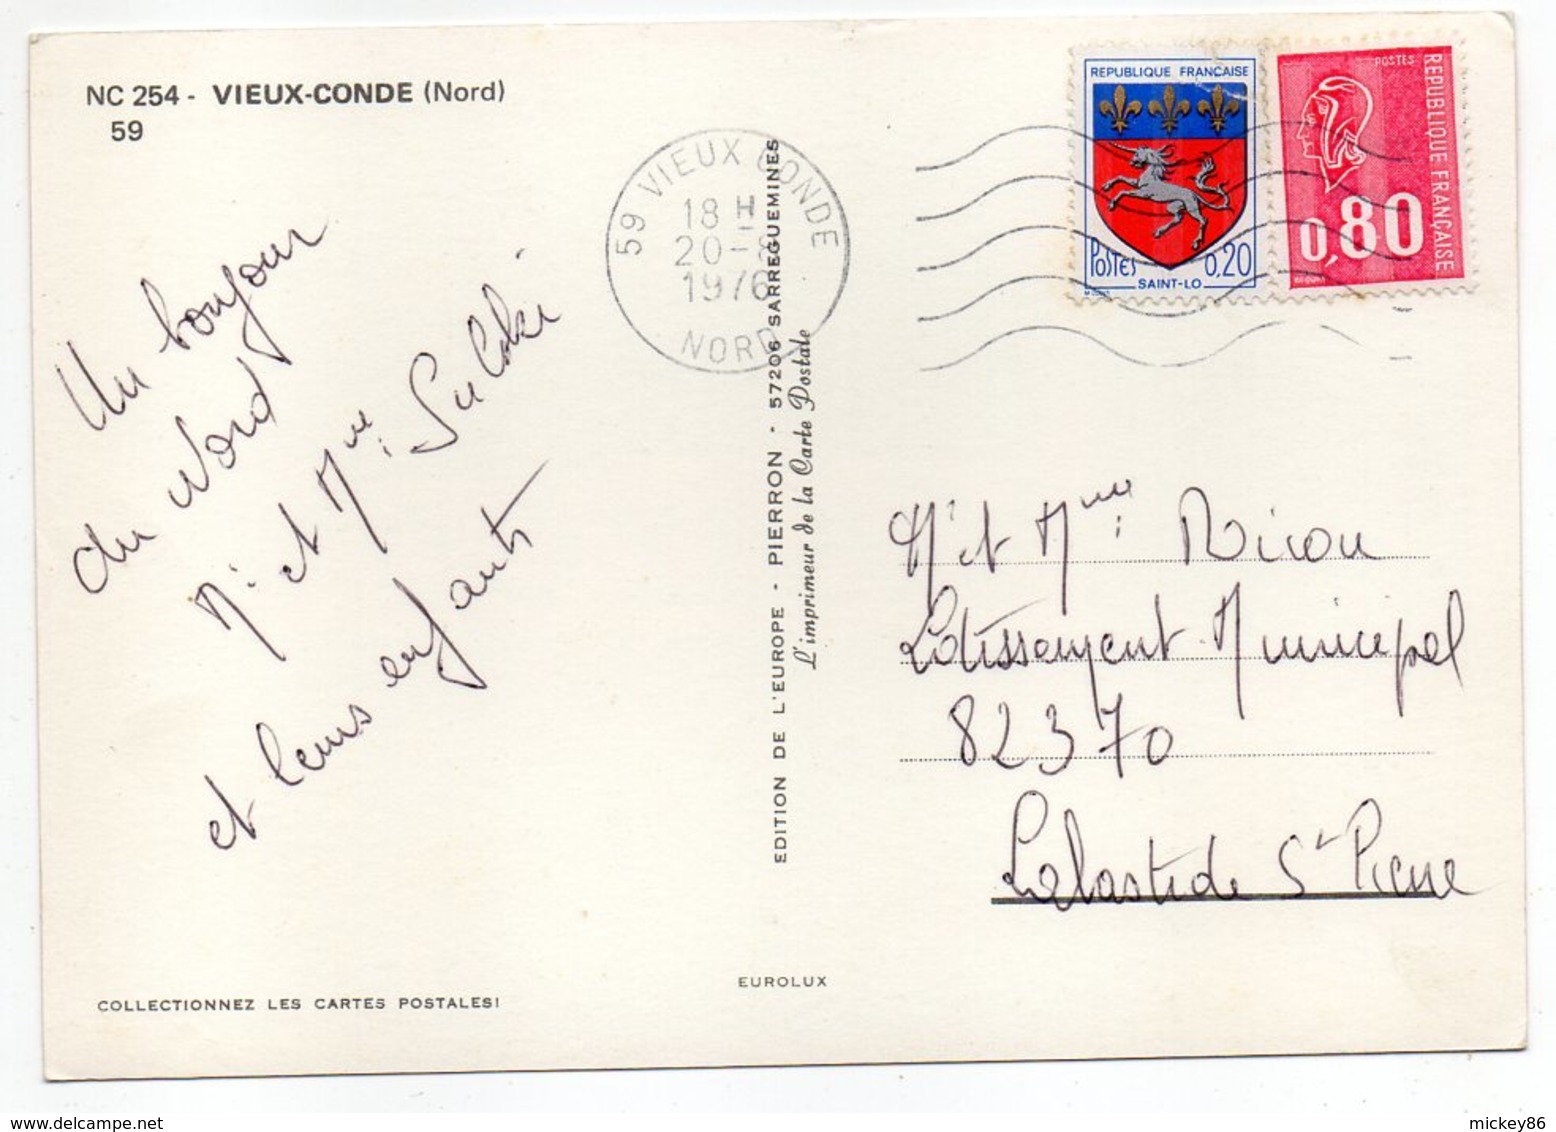 NC 254 - VIEUX-CONDE (Nord)
59
Un bonjour
du Nord
Mr et Mme
et leurs enfants
COLLECTIONNEZ LES CARTES POSTALES!
59 VIEUX CONDE
18 H
20-8
1976
NORD
EDITION DE L'EUROPE - PIERRON - 57206 SARREGUEMINES
L'imprimeur de la Carte Postale
EUROLUX
REPUBLIQUE FRANÇAISE
POSTES 0,20
SAINT-LO
POSTES
REPUBLIQUE FRANÇAISE
0,80
Mr et Mme
Lotissement Municipal
82370
Labastide St Pierre
mickey86